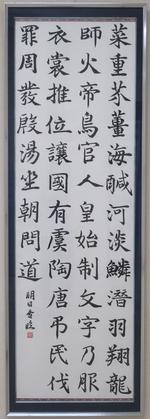 菜重芥薑海醎河淡鱗潛羽翔龍
師火帝鳥官人皇始制文字乃服
衣裳推位讓國有虞陶唐弔民伐
罪周發殷湯坐朝問道
明日香臨